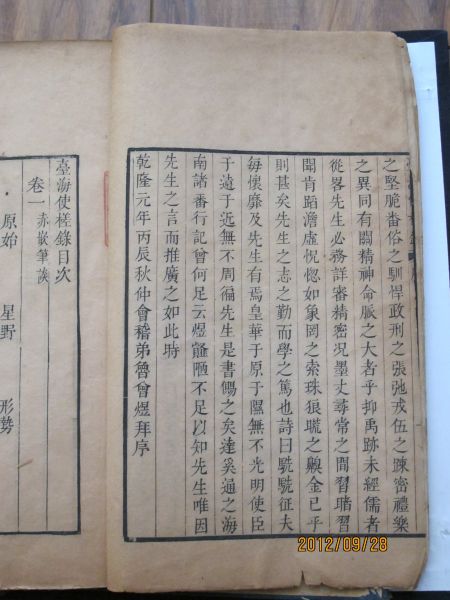 之堅脆畨俗之馴悍政刑之張弛戎伍之踈密禮樂
之異同有關精神命脈之大者乎抑禹跡未經儒者
從畧先生必務詳審精密况墨丈尋常之間習睹習
聞肯蹈澹虛怳惚如象罔之索珠狼䑏之齅金已乎
則甚矣先生之志之勤而學之篤也詩曰駪駪征夫
每懷靡及先生有焉皇華于原于隰無不光明使臣
于遠于近無不周徧先生是書傷之矣達奚通之海
南諸番行記曾何足云煜謭陋不足以知先生唯因
先生之言而推廣之如此時
乾隆元年丙辰秋仲會稽弟魯曾煜拜序
臺海使槎錄目次
卷一 赤嵌筆談
原始 星野 形勢
2012/09/28